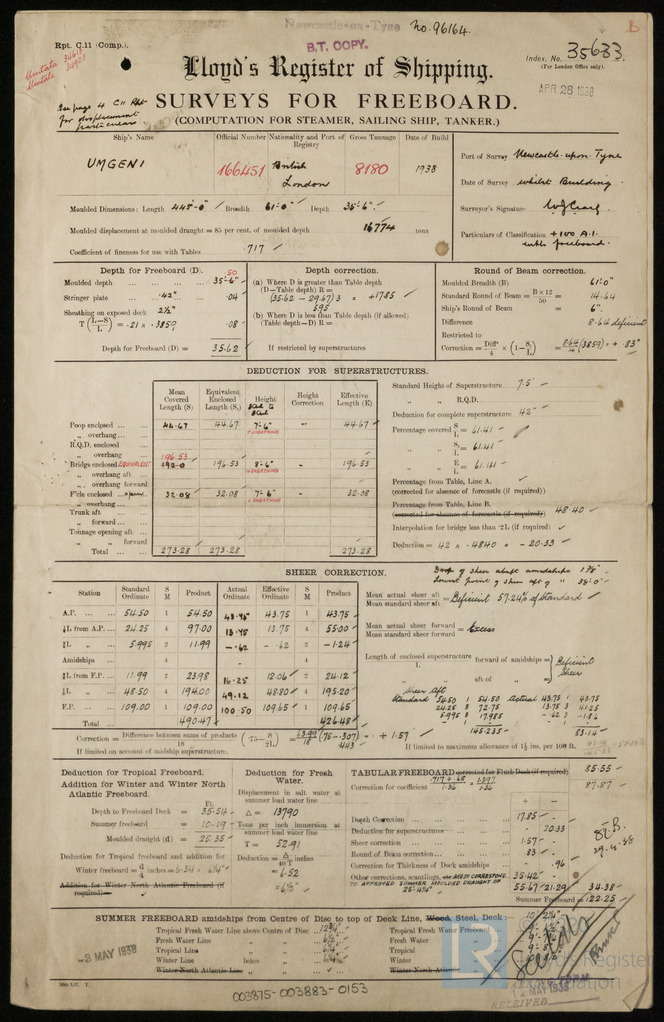 Newcastle-on-Tyne
No. 96164.
Rpt. C.11 (Comp.).
B.T. COPY.
Index. No. 35633.
(For London Office only).
Umtata 34618
Umtali 34928
Lloyd's Register of Shipping.
APR 28 1938
See page 4 C11 Rpt
for displacement
particulars
SURVEYS FOR FREEBOARD.
(COMPUTATION FOR STEAMER, SAILING SHIP, TANKER.)
Ship's Name
Official Number
Nationality and Port of Registry
Gross Tonnage
Date of Build
UMGENI
166451
British
London
8180
1938
Port of Survey Newcastle-upon-Tyne
Date of Survey whilst Building.
Surveyor's Signature
Particulars of Classification +100 A.1.
with freeboard.
Moulded Dimensions: Length 445'-0" Breadth 61'-0" Depth 35'-6"
Moulded displacement at moulded draught = 85 per cent. of moulded depth 16774 tons
Coefficient of fineness for use with Tables .717
Depth for Freeboard (D).
Moulded depth ... 35'-6" .50
Stringer plate ... .42" .04
Sheathing on exposed deck 2½"
T (L-S/L) = .21 × .3859 .08
Depth for Freeboard (D) = 35.62
Depth correction.
(a) Where D is greater than Table depth
(D-Table depth) R =
(35.62 - 29.67) 3 = +17.85
5.95
(b) Where D is less than Table depth (if allowed)
(Table depth-D) R =
If restricted by superstructures
Round of Beam correction.
Moulded Breadth (B) 61'.0"
Standard Round of Beam = B×12/50 = 14.64
Ship's Round of Beam = 6"
Difference 8.64 deficient
Restricted to
Correction = Diff/4 × (1-S/L) = 8.64/4 (.3859) = + .83"
DEDUCTION FOR SUPERSTRUCTURES.
Mean Covered Length (S)
Equivalent Enclosed Length (S₁)
Height
Height Correction
Effective Length (E)
Poop enclosed ... 44.67 44.67 7'-6" - 44.67
+ SHEATHING
„ overhang ...
R.Q.D. enclosed
„ overhang
196.53
Bridge enclosed EQUIVALENT 192.0 196.53 8'-6" - 196.53
+ SHEATHING
„ overhang aft ...
„ overhang forward
F'cle enclosed ... 32.08 32.08 7'-6" 32.08
+ SHEATHING
„ overhang ...
Trunk aft ...
„ forward ...
Tonnage opening aft
„ „ forward
Total ... 273.28 273.28 273.28
Standard Height of Superstructure 7.5'
„ „ R.Q.D.
Deduction for complete superstructure 42"
Percentage covered S/L = 61.41
„ S₁/L = 61.41
„ E/L = 61.41
Percentage from Table, Line A.
(corrected for absence of forecastle (if required))
Percentage from Table, Line B.
(corrected for absence of forecastle (if required)) 48.40
Interpolation for bridge less than .2L (if required)
Deduction = 42 × .4840 = - 20.33
SHEER CORRECTION.
Drop of sheer abaft amidships 1⅞"
Lowest point of sheer aft of „ 38'-0"
Station
Standard Ordinate
S M
Product
Actual Ordinate
Effective Ordinate
S M
Product
A.P. ... 54.50 1 54.50 43.75 43.75 1 43.75
⅙L from A.P. ... 24.25 4 97.00 13.75 13.75 4 55.00
⅓L „ 5.995 2 11.99 -.62 -.62 2 -1.24
Amidships ... 4 - 4
⅓L from F.P. ... 11.99 2 23.98 16.25 12.06 2 24.12
⅙L „ 48.50 4 194.00 49.12 48.80 4 195.20
F.P. ... 109.00 1 109.00 100.50 109.65 1 109.65
Total ... 490.47 426.48
Mean actual sheer aft / Mean standard sheer aft = Deficient 57.24% of Standard
Mean actual sheer forward / Mean standard sheer forward = Excess
Length of enclosed superstructure forward of amidships = Deficient Sheer
L
„ aft of „ =
Sheer Aft
Standard 54.50 1 54.50 Actual 43.75 1 43.75
24.25 3 72.75 13.75 3 41.25
5.995 3 17.985 -.62 3 -1.86
145.235 83.14
Correction = Difference between sums of products/18 (.75-S/2L) = (.75-.307) = + 1.57
.443
If limited on account of midship superstructure.
If limited to maximum allowance of 1½ ins. per 100 ft.
Deduction for Tropical Freeboard.
Addition for Winter and Winter North
Atlantic Freeboard.
Ft.
Depth to Freeboard Deck = 35.54
Summer freeboard = 10.19
Moulded draught (d) = 25.35
Deduction for Tropical freeboard and addition for
Winter freeboard = d/4 inches = 6.34 = 6¼"
Addition for Winter North Atlantic Freeboard (if
required) =
Deduction for Fresh
Water.
Displacement in salt water at
summer load water line
Δ = 13790
Tons per inch immersion at
summer load water line
T = 52.91
Deduction = Δ/40T inches
= 6.52
= 6½"
TABULAR FREEBOARD corrected for Flush Deck (if required) 85.55
Correction for coefficient .717+.68/1.36 = 1.397/1.36 87.87
+ -
Depth Correction 17.85 -
Deduction for superstructures - 20.33
Sheer correction 1.57 -
Round of Beam correction .83 -
Correction for Thickness of Deck amidships - .96
Other corrections, scantlings, etc. 35.42 -
TO APPROVED SUMMER MOULDED DRAUGHT OF 25'-4¼"
55.67 21.29 34.38
Summer Freeboard = 122.25
29-4-38
SUMMER FREEBOARD amidships from Centre of Disc to top of Deck Line, Wood, Steel, Deck :-
Tropical Fresh Water Line above Centre of Disc 12¾"
Fresh Water Line „ „ 6½"
Tropical Line „ „ 6¼"
Winter Line below „ 6¼"
Winter North Atlantic Line „ „
Tropical Fresh Water Freeboard
Fresh Water „
Tropical „
Winter „
Winter North Atlantic „
-3 MAY 1938
12 MAY 1938
RECEIVED
003875-003883-0153
LR
Lloyd's Register
Foundation